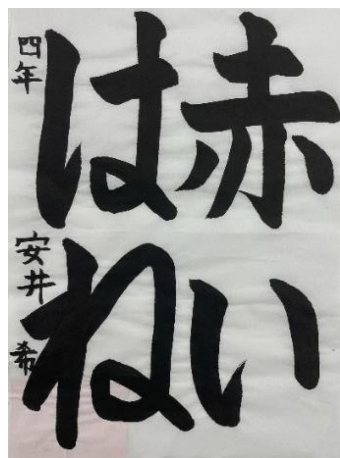 赤い
はね
四年 安井 希